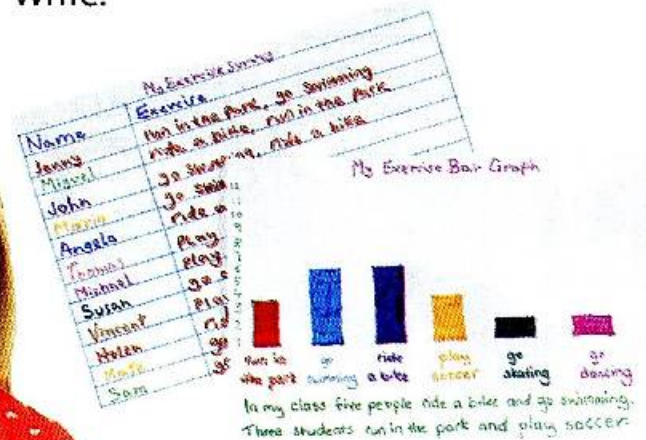 My Exercise Survey
Name Exercise
Jenny run in the park, go swimming
Miguel ride a bike, run in the park
John go swimming, ride a bike
Maria go
Angela ride a
Thomas play
Michael play
Susan go
Vincent play
Helen
Mary go
Sam go
My Exercise Bar Graph
12
11
10
9
8
7
6
5
4
3
2
1
run in go ride play go go
the park swimming a bike soccer skating dancing
In my class five people ride a bike and go swimming.
Three students run in the park and play soccer.